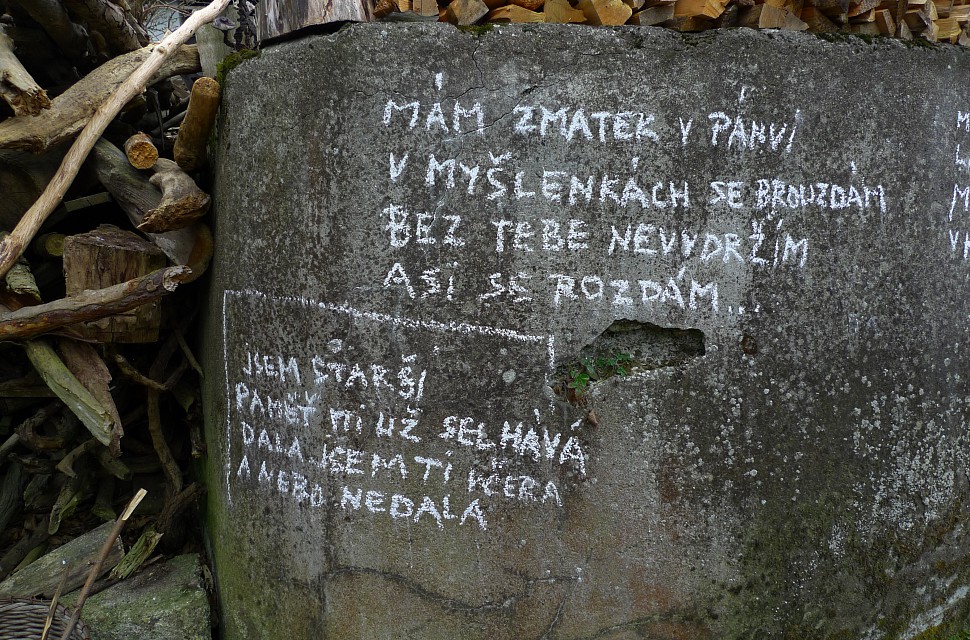 MÁM ZMATEK V PÁNVI
V MYŠLENKÁCH SE BROUZDÁM
BEZ TEBE NEVYDRŽÍM
ASI SE ROZDÁM...
JSEM STARŠÍ
PAMĚŤ MI UŽ SELHÁVÁ
DALA JSEM TI VČERA
A NEBO NEDALA